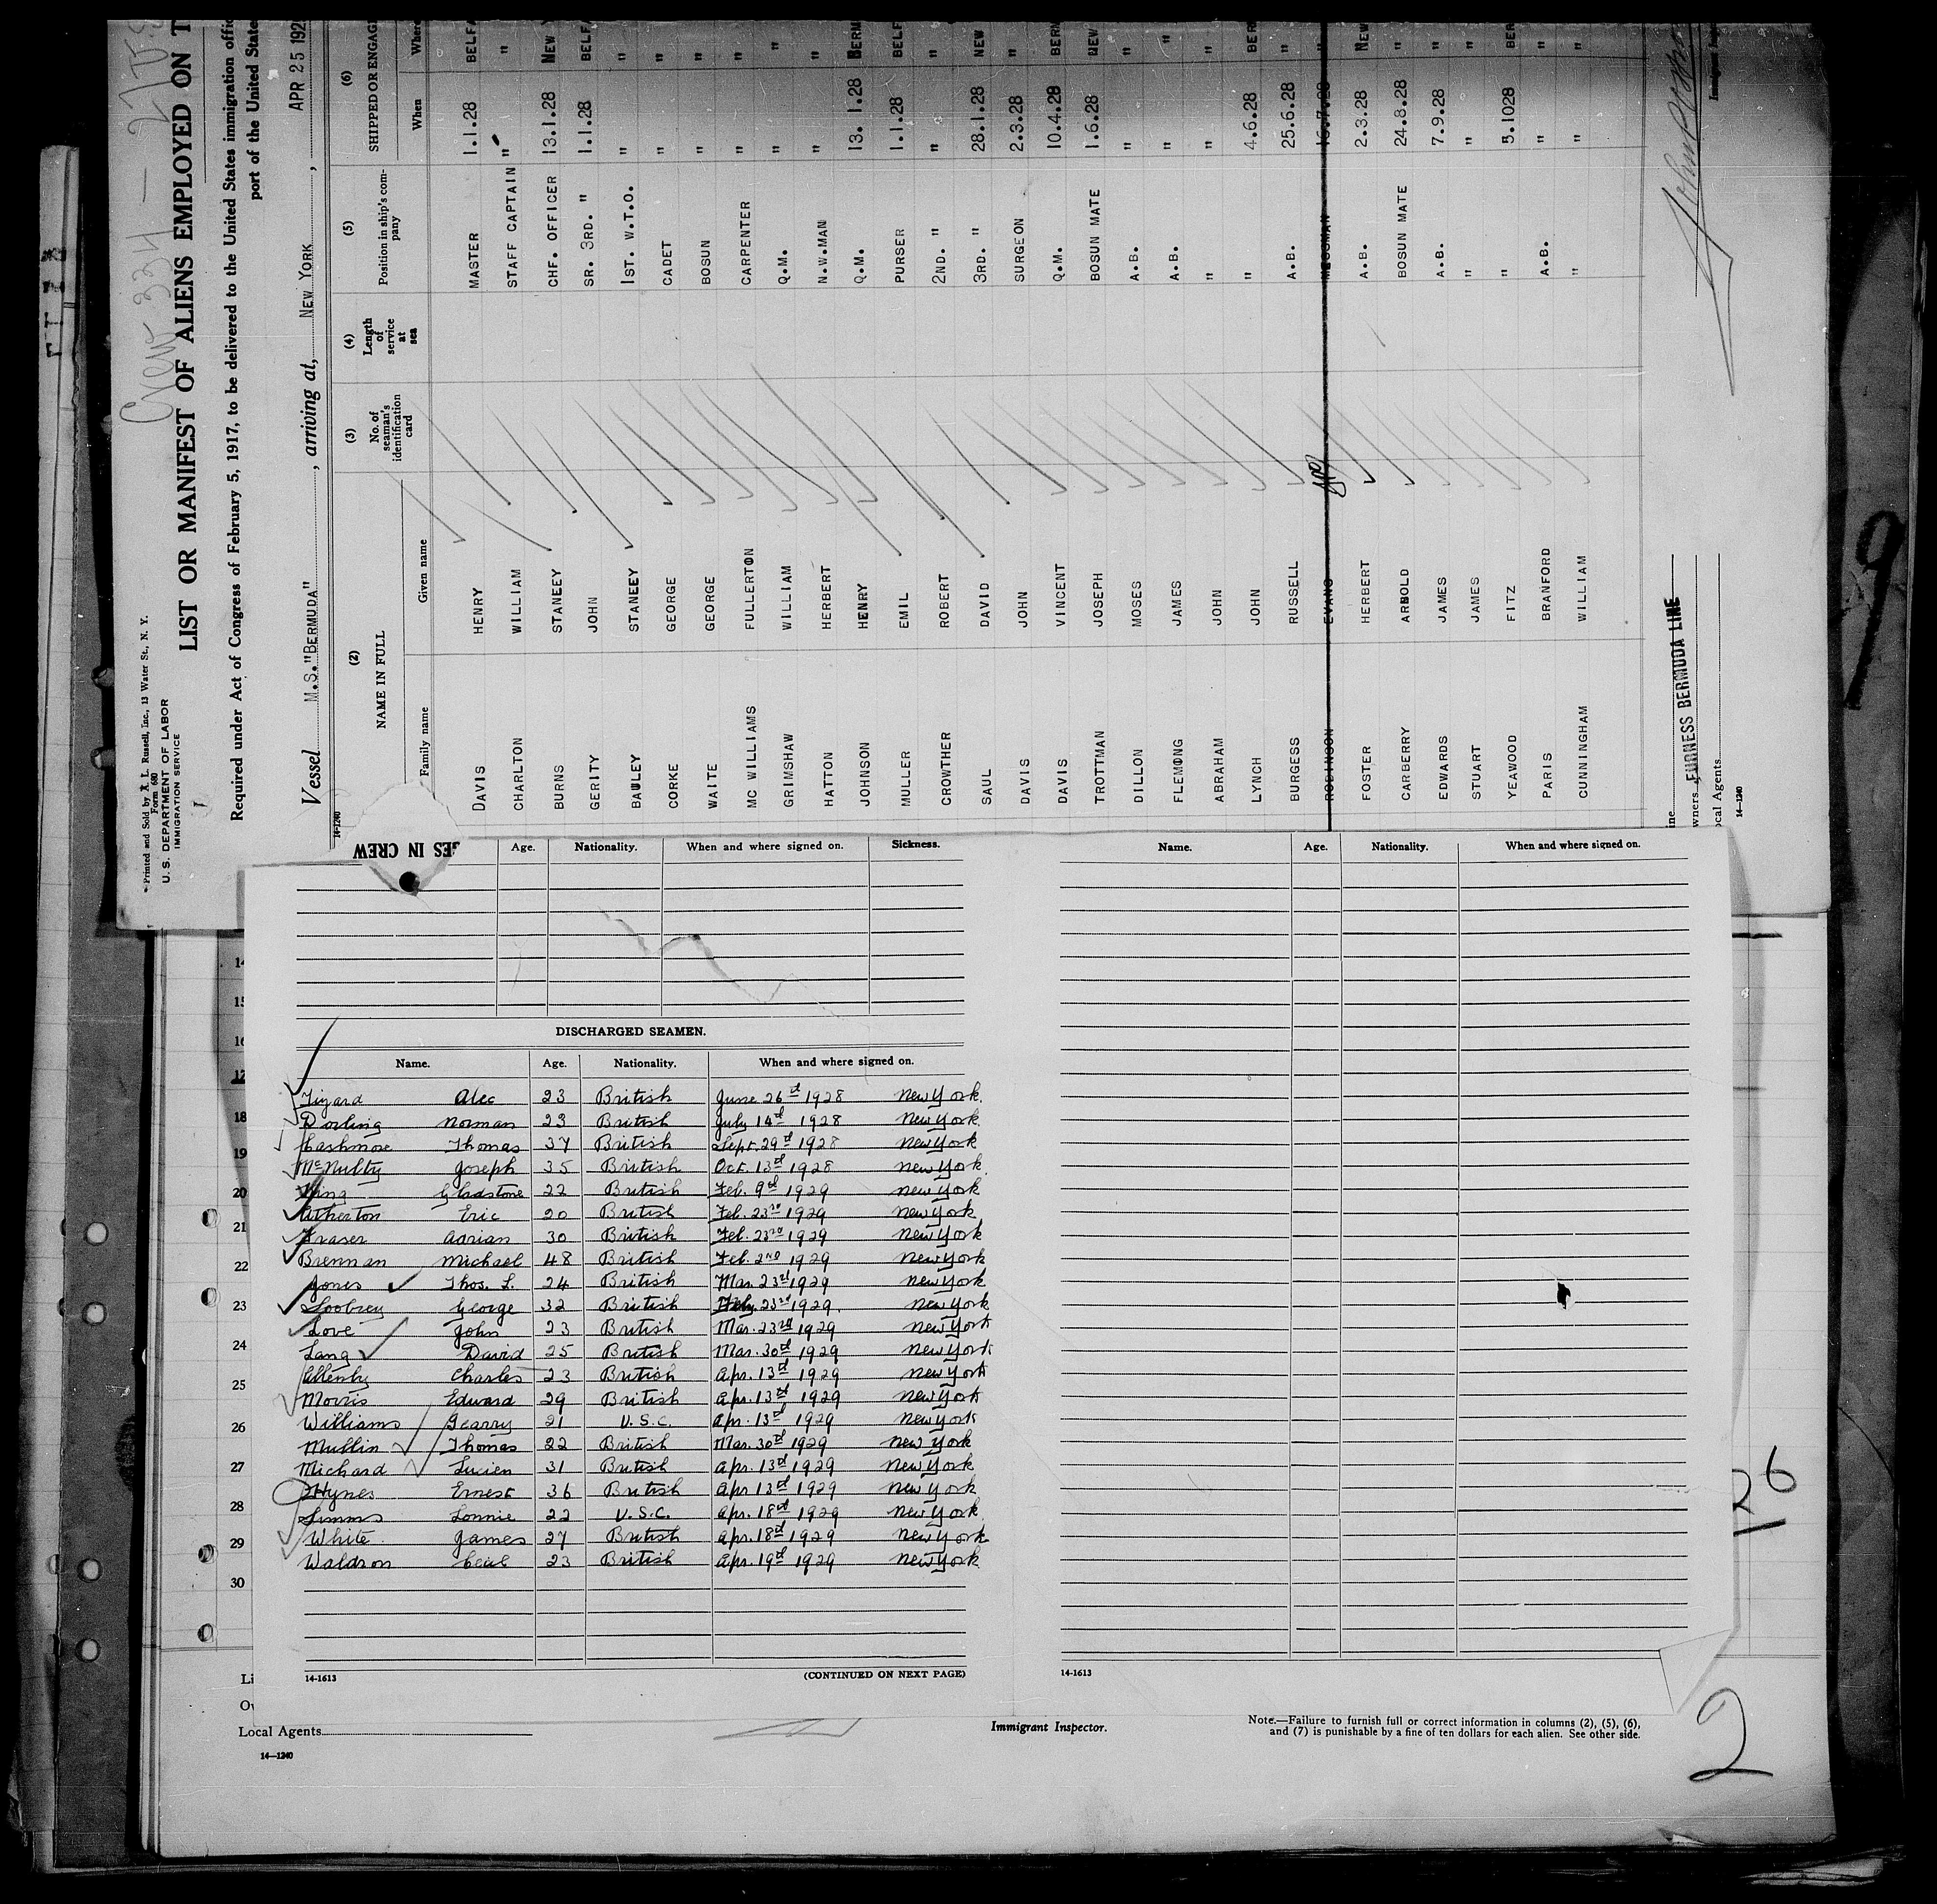 Printed and Sold by R. L. Russell, Inc., 13 Water St., N. Y.
Form 680
U. S. DEPARTMENT OF LABOR
IMMIGRATION SERVICE
Crew 334
LIST OR MANIFEST OF ALIENS EMPLOYED ON T
Required under Act of Congress of February 5, 1917, to be delivered to the United States immigration offic
port of the United State
Vessel M.S."BERMUDA", arriving at, NEW YORK, APR 25 192
(2) (3) (4) (5) (6)
NAME IN FULL No. of seaman's identification card Length of service at sea Position in ship's company SHIPPED OR ENGAG
Family name Given name When Wher
DAVIS HENRY MASTER 1.1.28 BELFA
CHARLTON WILLIAM STAFF CAPTAIN " "
BURNS STANEEY CHF. OFFICER 13.1.28 NEW Y
GERITY JOHN SR. 3RD. " 1.1.28 BELFA
BAULEY STANEEY 1ST. W.T.O. " "
CORKE GEORGE CADET " "
WAITE GEORGE BOSUN " "
MC WILLIAMS FULLERTON CARPENTER " "
GRIMSHAW WILLIAM Q.M. " "
HATTON HERBERT N.W.MAN " "
JOHNSON HENRY Q.M. 13. 1.28 BERM
MULLER EMIL PURSER 1.1.28 BELF
CROWTHER ROBERT 2ND. " " "
SAUL DAVID 3RD. " 28.1.28 NEW
DAVIS JOHN SURGEON 2.3.28 "
DAVIS VINCENT Q.M. 10.4.28 BERM
TROTTMAN JOSEPH BOSUN MATE 1.6.28 NEW
DILLON MOSES A.B. " "
FLEMONG JAMES A.B. " "
ABRAHAM JOHN " " "
LYNCH JOHN " 4.6.28 BER
BURGESS RUSSELL A.B. 25.6.28 "
ROBINSON EVANS MESSMAN 16.7.28 "
FOSTER HERBERT A.B. 2.3.28 NEW
CARBERRY ARNOLD BOSUN MATE 24.8.28 "
EDWARDS JAMES A.B. 7.9.28 "
STUART JAMES " " "
YEAWOOD FITZ " 5.1028 BER
PARIS BRANFORD A.B. " "
CUNNINGHAM WILLIAM " " "
ine
wners FURNESS BERMUDA LINE
ocal Agents
14-1240
14-1240
9
GES IN CREW
Age. Nationality. When and where signed on. Sickness.
Name. Age. Nationality. When and where signed on.
DISCHARGED SEAMEN.
Name. Age. Nationality. When and where signed on.
Tizard Alec 23 British June 26th 1928 New York.
Dorling Norman 23 British July 14th 1928 New York.
Cashmore Thomas 37 British Sept. 29th 1928 New York
McNulty Joseph 35 British Oct. 13th 1928 New York
King Gladstone 22 British Feb. 9th 1929 New York
Atherton Eric 20 British Feb. 23rd 1929 New York
Fraser Adrian 30 British Feb. 23rd 1929 New York
Brennan Michael 48 British Feb. 2nd 1929 New York
Jones Thos. L. 24 British Mar. 23rd 1929 New York
Soobrey George 32 British 23rd 1929. New York
Love John 23 British Mar. 23rd 1929 New York
Lang David 25 British Mar. 30th 1929 New York
Allenby Charles 23 British Apr. 13th 1929 New York
Morris Edward 29 British Apr. 13th 1929 New York
Williams Gearry 21 U.S.C. Apr. 13th 1929 New York
Mullin Thomas 22 British Mar. 30th 1929 New York
Michard Lucien 31 British Apr. 13th 1929 New York
Hynes Ernest 36 British Apr 13th 1929 New York
Simms Lonnie 22 U.S.C. Apr. 18th 1929 New York
White James 27 British Apr. 18th 1929 New York
Waldron Cecil 23 British Apr. 19th 1929 New York
14-1613 (CONTINUED ON NEXT PAGE)
14-1613
14
15
16
17
18
19
20
21
22
23
24
25
26
27
28
29
30
26
Li
Ow
Local Agents
Immigrant Inspector.
Note.—Failure to furnish full or correct information in columns (2), (5), (6),
and (7) is punishable by a fine of ten dollars for each alien. See other side.
14—1240
2